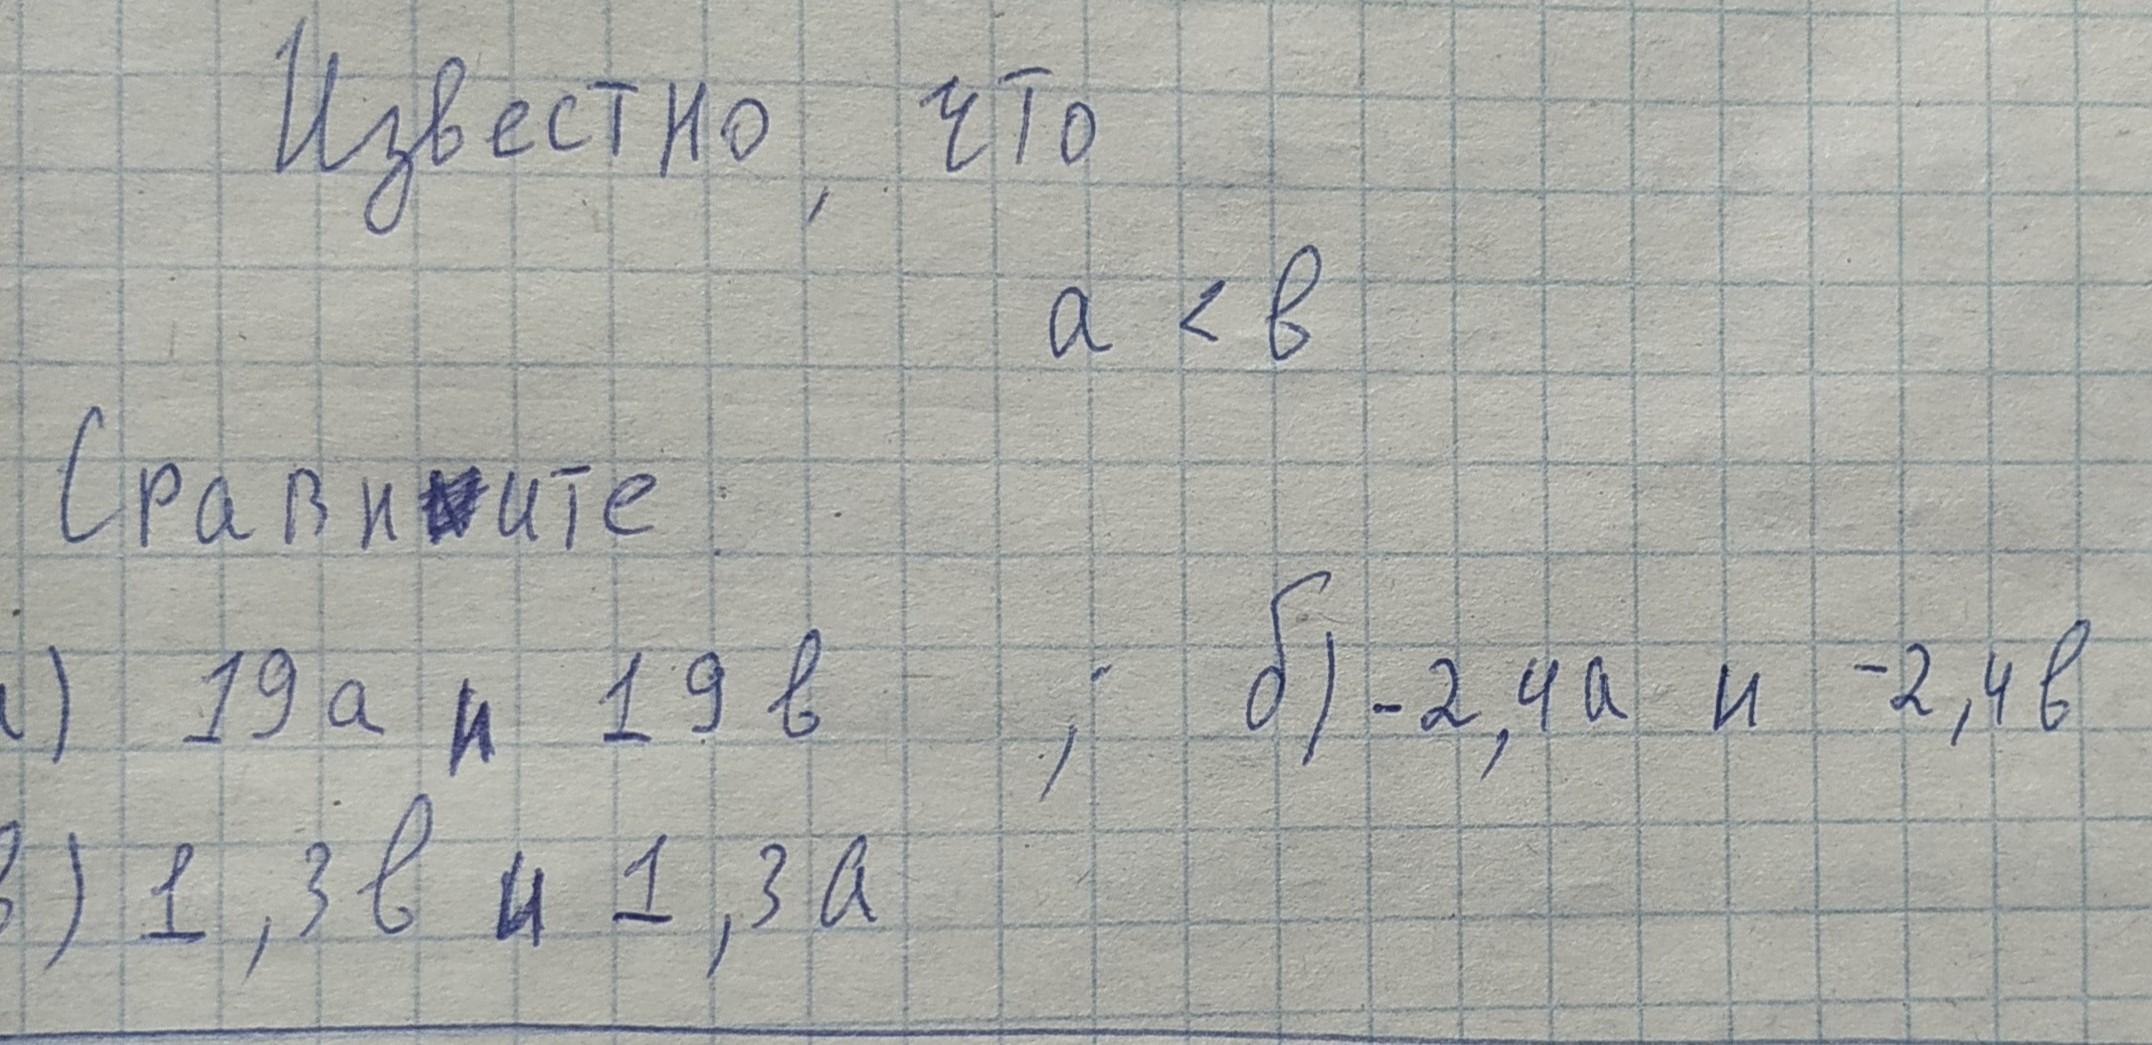 Известно, что
а < в
Сравните:
а) 19а и 19в ; б) -2,4а и -2,4в
в) 1,3в и 1,3а